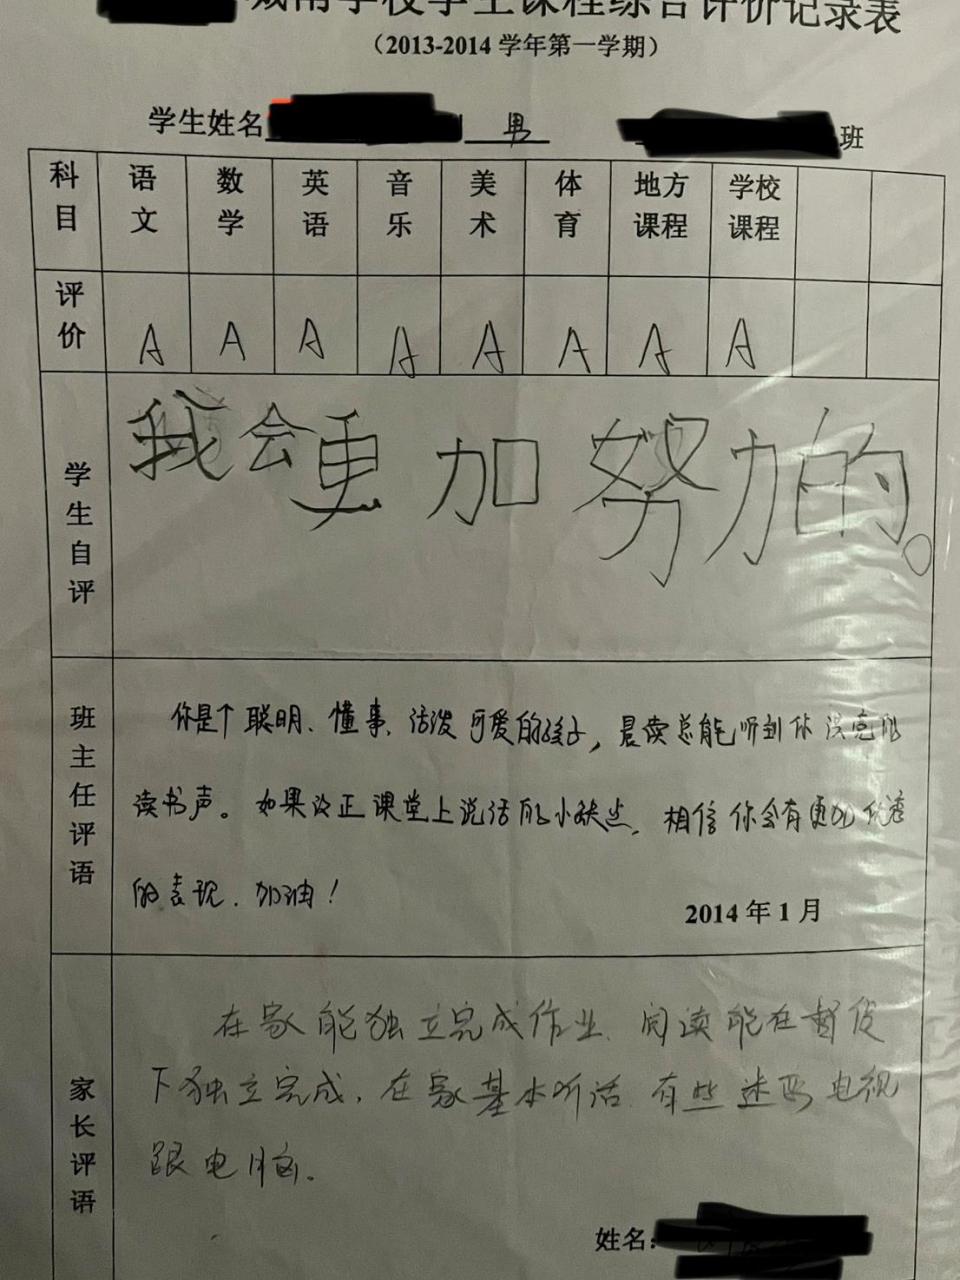 城南学校学生课程综合评价记录表
（2013-2014 学年第一学期）
学生姓名 男 班
科目 语文 数学 英语 音乐 美术 体育 地方课程 学校课程
评价 A A A A A A A A
学生自评
我会更加努力的。
班主任评语
你是个聪明、懂事、活泼可爱的孩子，晨读总能听到你 的
读书声。如果改正课堂上说话的小缺点，相信你会有更加优秀
的表现，加油！
2014 年 1 月
家长评语
在家能独立完成作业、阅读能在督促
下独立完成，在家基本听话 有些迷恋电视
跟电脑。
姓名：